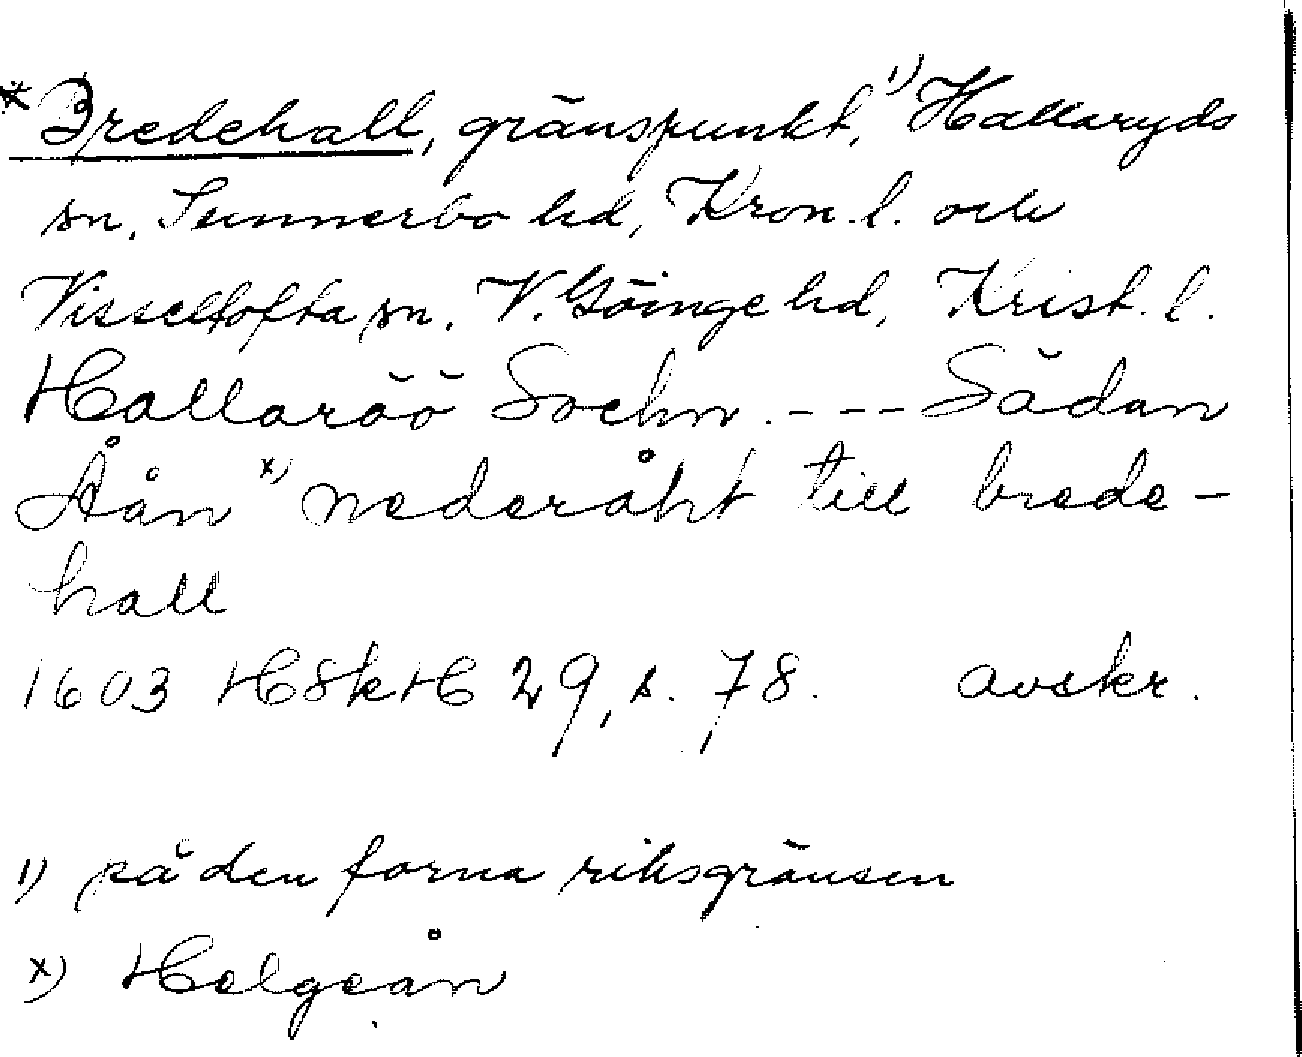 *Bredehall, gränspunkt,¹⁾ Hallaryds
sn, Sunnerbo hd, Kron. l. och
Visseltofta sn. V. Göinge hd, Krist. l.
Hallaröö Sochn. --- Sädan
Åån ˣ⁾ nederåht till brede-
hall
1603 HSkH 29, s. 78. avskr.
1) på den forna riksgränsen
x) Helgeån